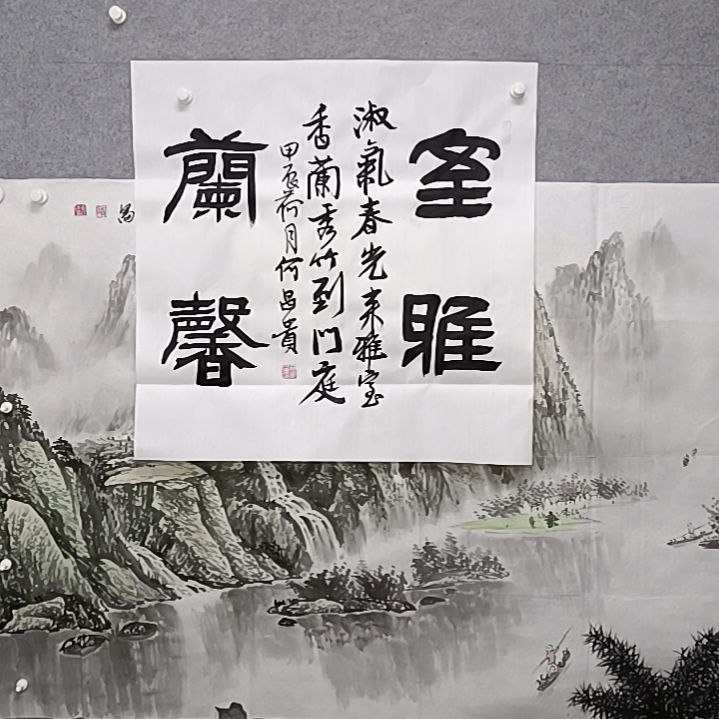 室雅
淑氣春光来雅室
香蘭秀竹到门庭
甲辰荷月何昌貴
蘭馨